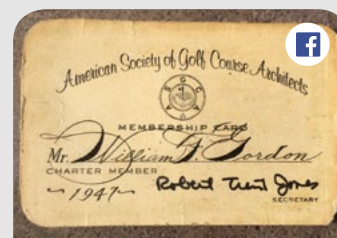 American Society of Golf Course Architects
ASGCA
MEMBERSHIP CARD
Mr. William F. Gordon
CHARTER MEMBER
~ 1947 ~ Robert Trent Jones
SECRETARY